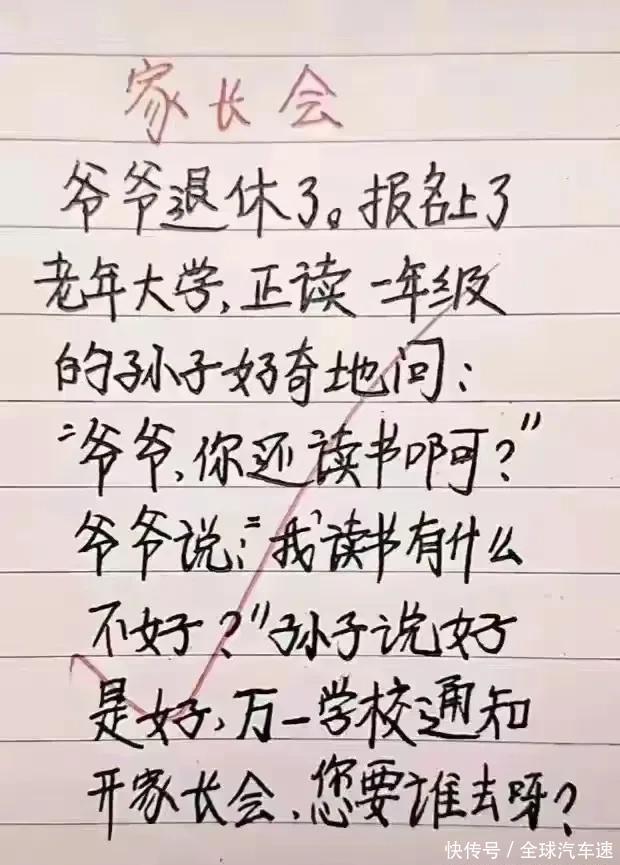 家长会
爷爷退休了。报名上了
老年大学,正读一年级
的孙子好奇地问:
“爷爷,你还读书啊?”
爷爷说:“我读书有什么
不好?”孙子说好
是好,万一学校通知
开家长会、您要谁去呀?
快传号/全球汽车速